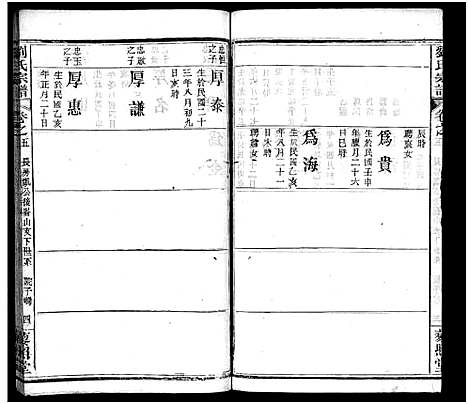 劉氏宗譜
卷之五
辰時
聘袁女
為貴
生於民國壬申
年臘月二十六
日巳時
為海
生於民國乙亥
年八月二十一
日未時
聘蕭女
忠恒
之子
厚泰
生於民國二十
三年八月初九
日亥時
忠啟
之子
厚謙
忠玉
之子
厚惠
生於民國乙亥
年正月二十日
劉氏宗譜
卷之五
四
藜照堂